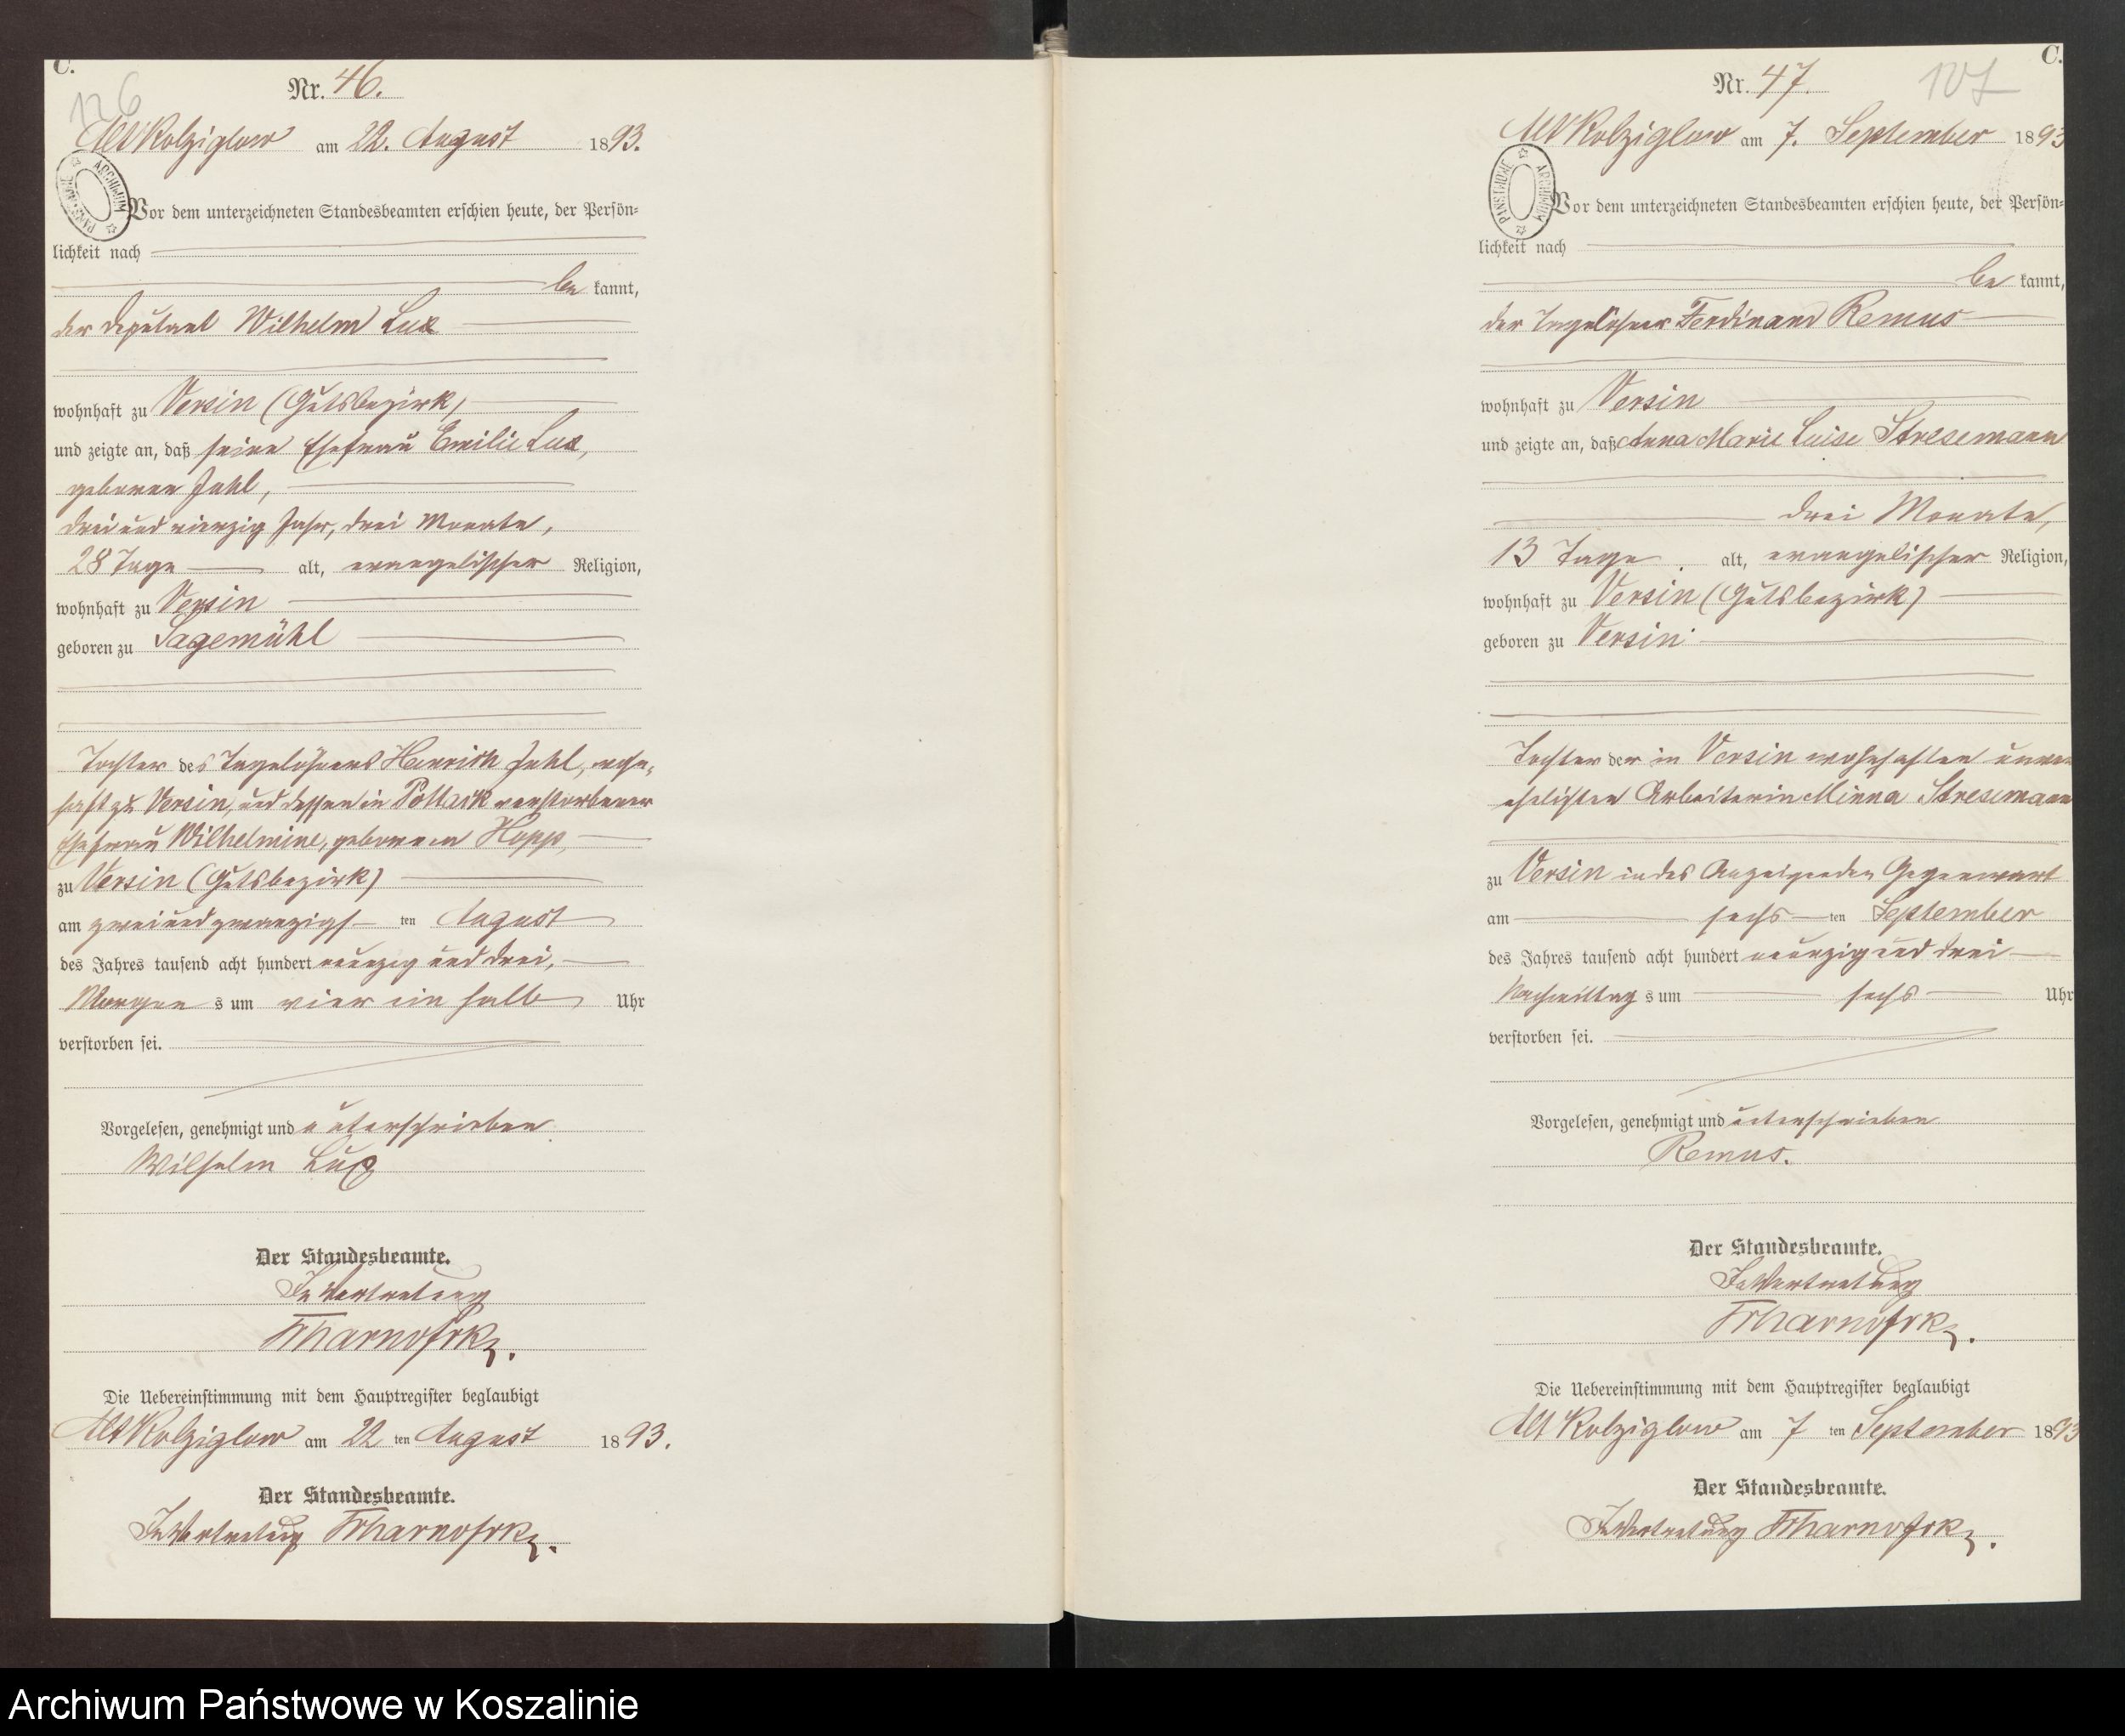 C.
126
Nr. 46.
Alt Kolziglow am 22. August 1893.
ARCHIWUM PAŃSTWOWE
Vor dem unterzeichneten Standesbeamten erschien heute, der Persön=
lichkeit nach
be kannt,
der Deputant Wilhelm Lux
wohnhaft zu Versin (Gutsbezirk)
und zeigte an, daß seine Ehefrau Emilie Lux,
geborene Jahl,
drei und vierzig Jahr, drei Monate,
28 Tage alt, evangelischer Religion,
wohnhaft zu Versin
geboren zu Sagemühl
Tochter des Tagelöhners Heinrich Jahl, wohn-
haft zu Versin, und dessen in verstorbener
Ehefrau Wilhelmine, geborenen Hopp,
zu Versin (Gutsbezirk)
am zwei und zwanzigs ten August
des Jahres tausend acht hundert neunzig und drei,
Morgen s um vier ein halb Uhr
verstorben sei.
Vorgelesen, genehmigt und unterschrieben
Wilhelm Lux
Der Standesbeamte.
In Vertretung
Die Uebereinstimmung mit dem Hauptregister beglaubigt
Alt Kolziglow am 22 ten August 1893.
Der Standesbeamte.
In Vertretung
C.
107
Nr. 47.
Alt Kolziglow am 7. September 1893
ARCHIWUM PAŃSTWOWE
Vor dem unterzeichneten Standesbeamten erschien heute, der Persön=
lichkeit nach
be kannt,
der Tagelöhner Ferdinand Remus
wohnhaft zu Versin
und zeigte an, daß Anna Marie Luise Stresemann
drei Monate,
13 Tage alt, evangelischer Religion,
wohnhaft zu Versin (Gutsbezirk)
geboren zu Versin
Tochter der in Versin wohnhaften unver
ehelichten Arbeiterin Minna Stresemann
zu Versin in des Anzeigenden Gegenwart
am sechs ten September
des Jahres tausend acht hundert neunzig und drei
Nachmittag s um sechs Uhr
verstorben sei.
Vorgelesen, genehmigt und unterschrieben
Remus.
Der Standesbeamte.
In Vertretung
Die Uebereinstimmung mit dem Hauptregister beglaubigt
Alt Kolziglow am 7 ten September 1893
Der Standesbeamte.
In Vertretung
Archiwum Państwowe w Koszalinie